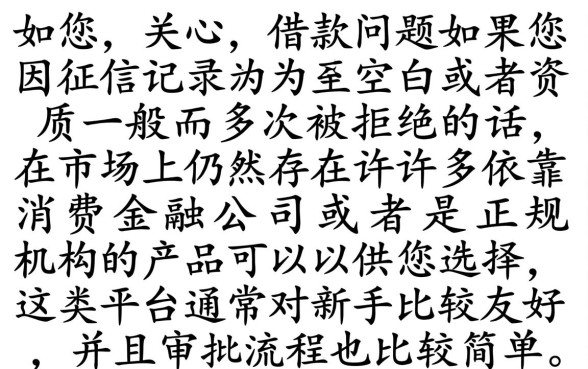 如您，关心，借款问题如果您
因征信记录为为至空白或者资
质一般而多次被拒绝的话，
在市场上仍然存在许许多依靠
消费金融公司或者是正规
机构的产品可以以供您选择，
这类平台通常对新手比较友好
，并且审批流程也比较简单。